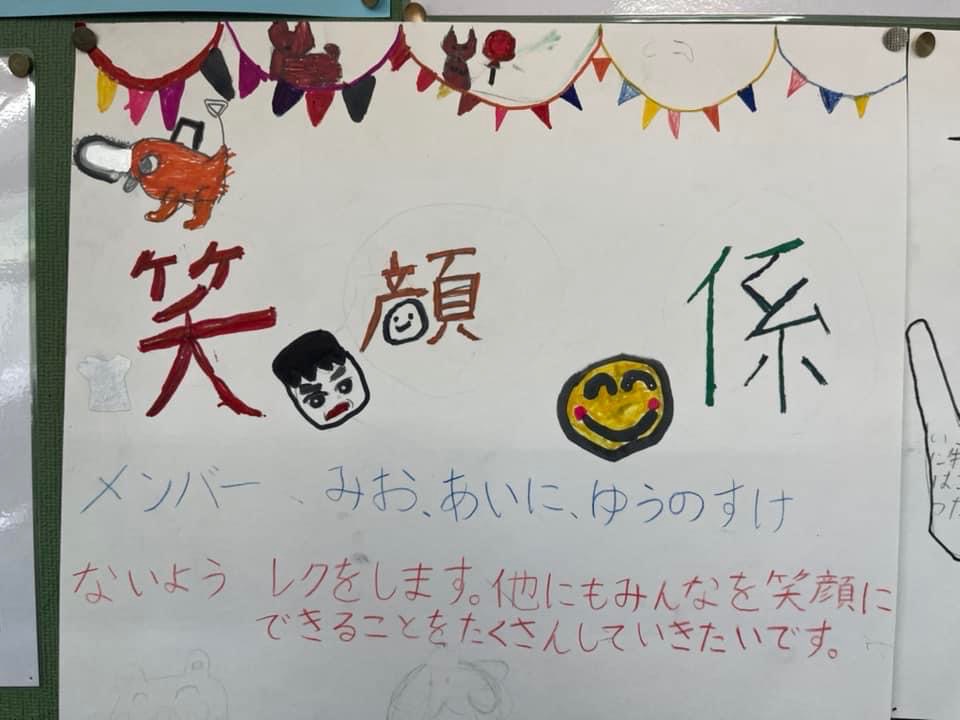 笑顔 係
メンバー、みお、あいに、ゆうのすけ
ないよう レクをします。他にもみんなを笑顔に
できることをたくさんしていきたいです。